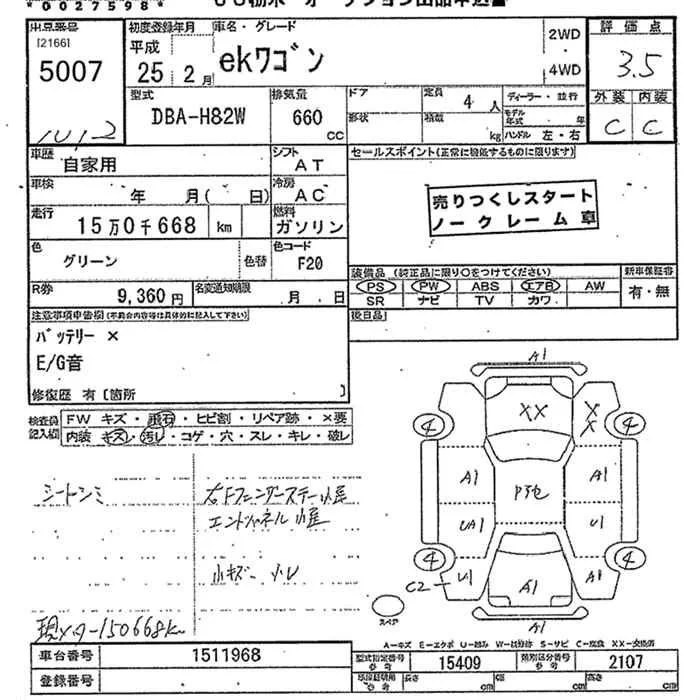 *0027598*
出品番号
[2166]
5007
初度登録年月
平成
25 2月
車名・グレード
ekワゴン
2WD
4WD
評価点
3.5
外装 内装
C C
型式
DBA-H82W
排気量
660
CC
ドア
形状
定員 4 人
積載
kg
ディーラー・並行
モデル年式 年
ハンドル 左・右
車歴
自家用
シフト
AT
車検
年 月( 日)
冷房
AC
走行
15万0千668 km
燃料
ガソリン
色
グリーン
色替
色コード
F20
R券
9,360円
名変通知期限
月 日
セールスポイント(正常に機能するものに限ります)
売りつくしスタート
ノークレーム車
装備品 (純正品に限り○をつけてください)
新車保証書
PS PW ABS エアB AW
SR ナビ TV カワ
有・無
後日品
注意事項申告欄(不具合内容等は具体的に記入して下さい)
バッテリー ×
E/G音
修復歴 有〔箇所 〕
検査員記入欄
FW キズ・飛石・ヒビ割・リペア跡・×要
内装 キズ・汚レ・コゲ・穴・スレ・キレ・破レ
シートシミ
右Fフェンダーステー小尾
エンドパネル小尾
小キズ
現メーター150668km
A1
XX
X
X
4
4
A1
A1
UA1
U1
4
4
C2
U1
A1
A1
A1
スペア
A-キズ E-エクボ U-凹み W-補修跡 S-サビ C-腐食 XX-交換済
車台番号
1511968
登録番号
型式指定番号
参考
15409
類別区分番号
参考
2107
参考
長さ
cm
幅
cm
高さ
cm